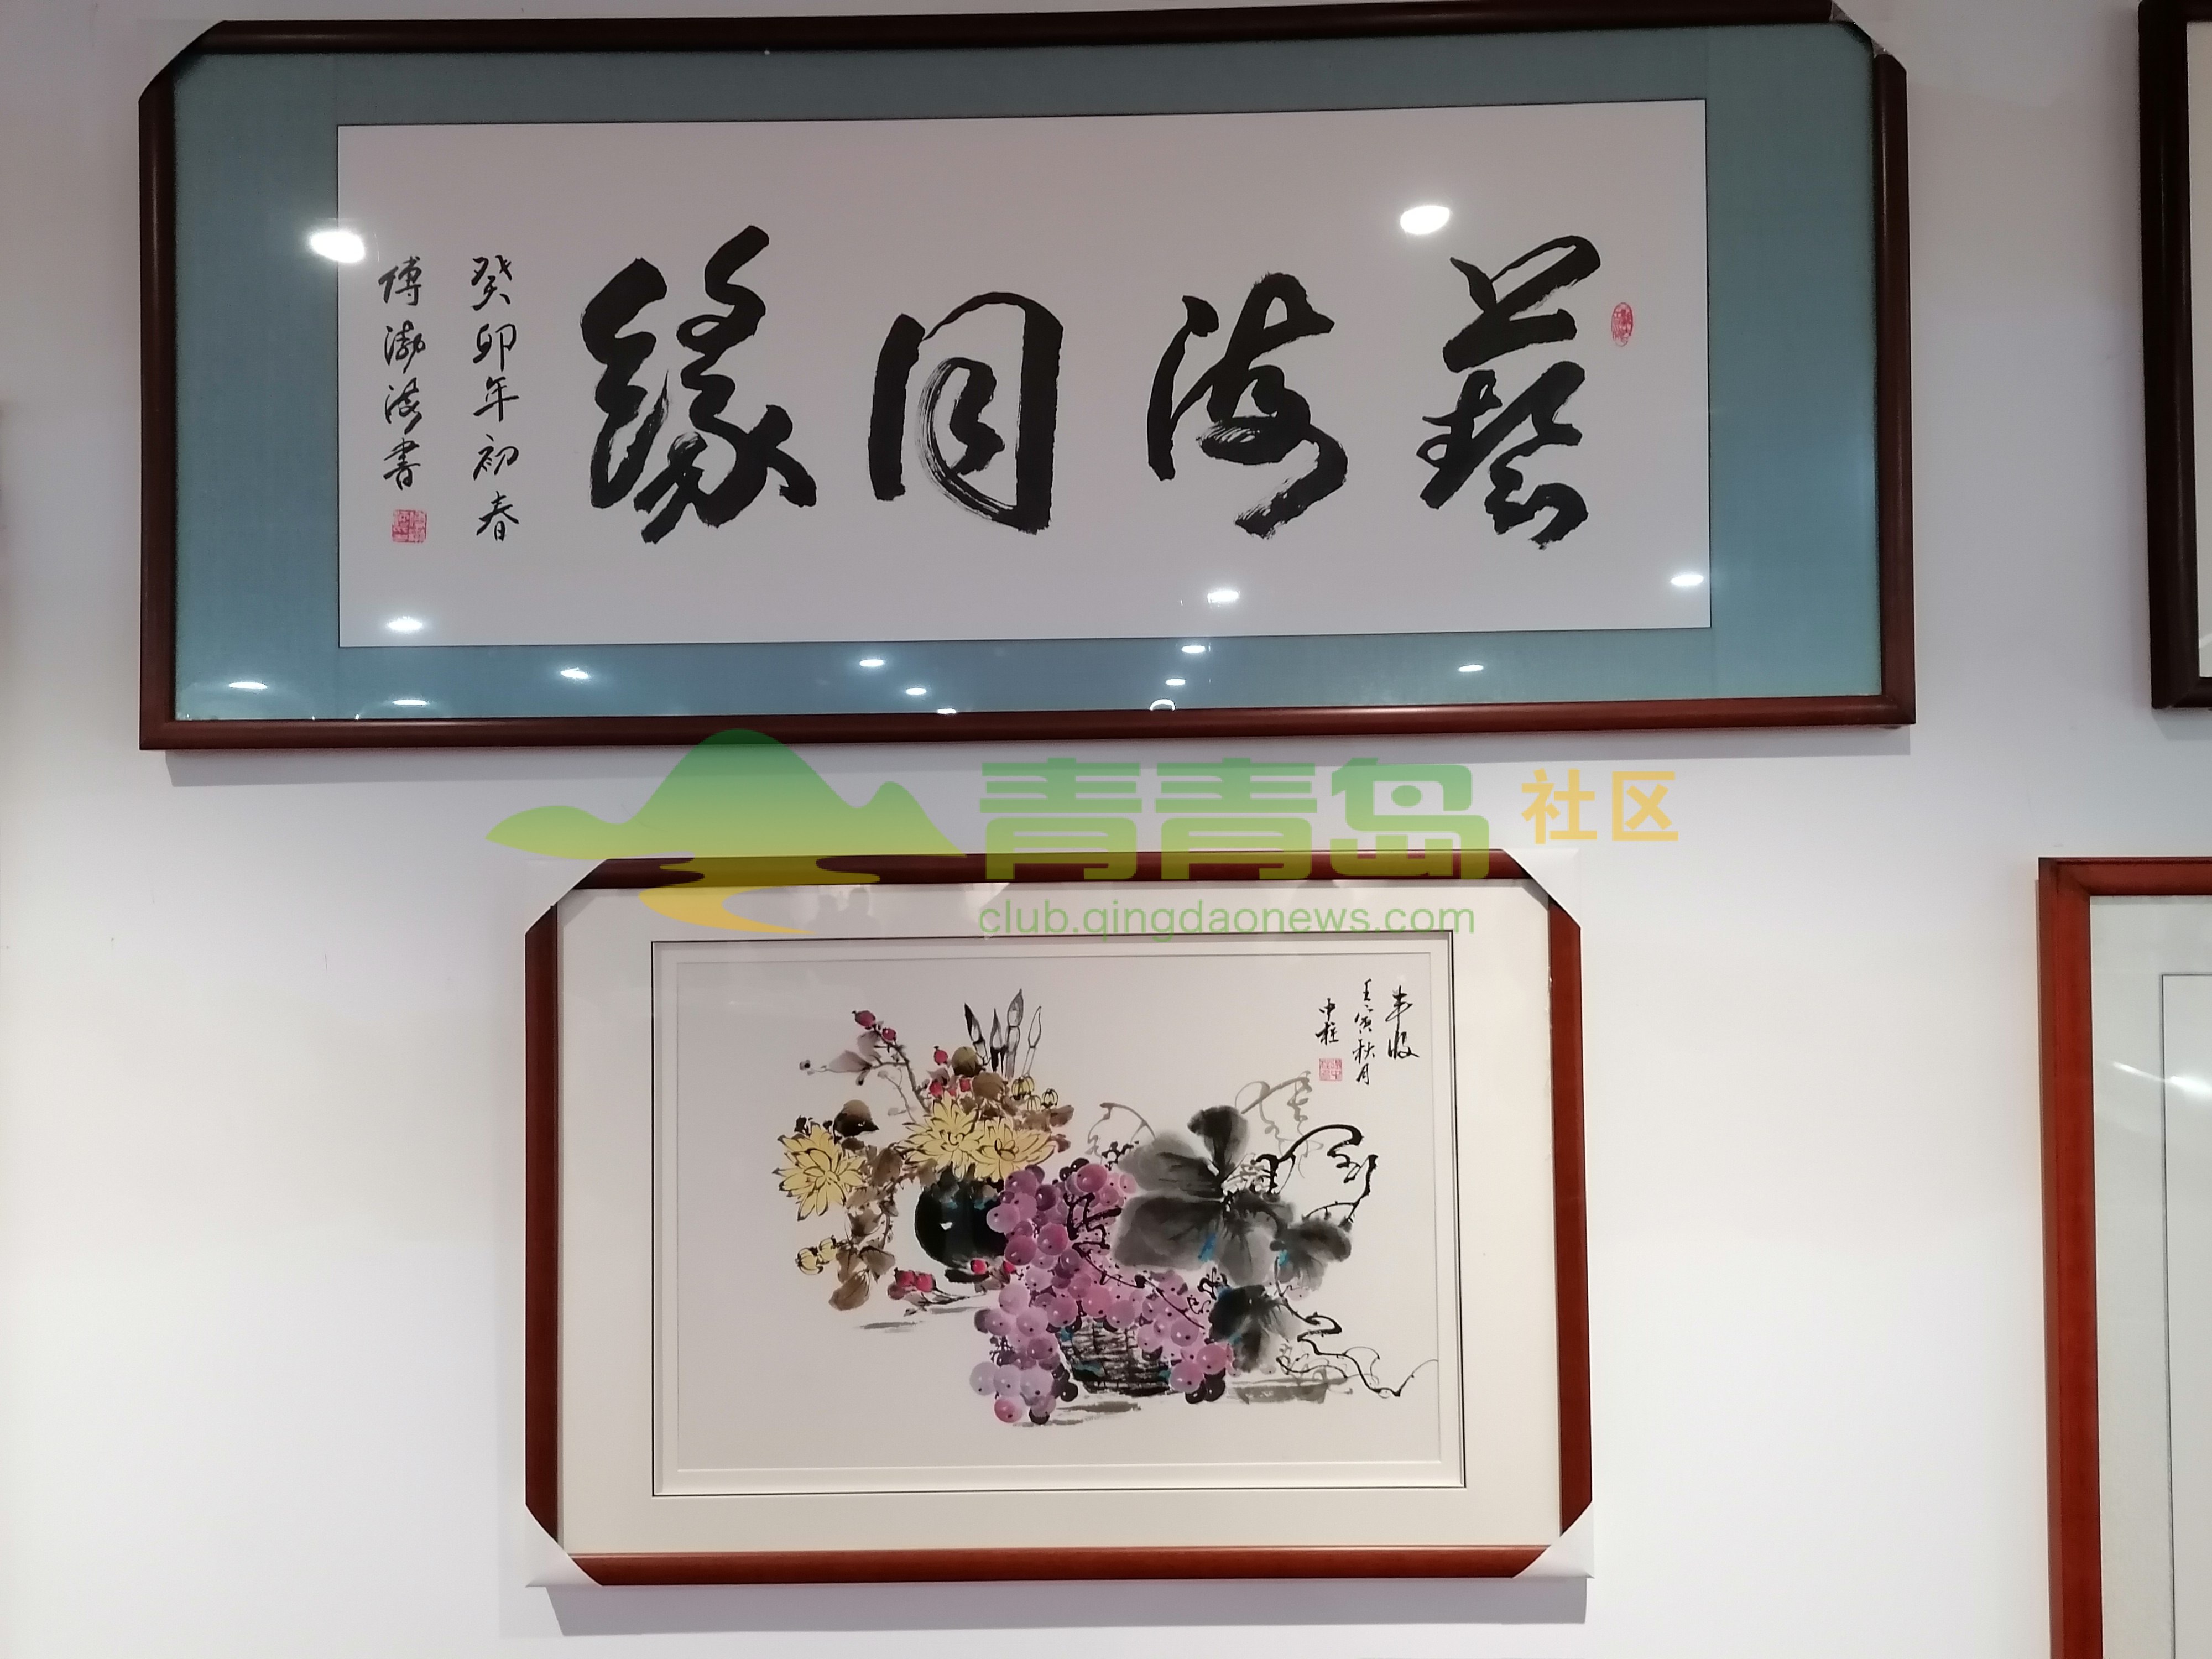 藝海同緣
癸卯年初春
傅渤海書
青青岛社区
club.qingdaonews.com
丰收
壬寅秋月
中柱